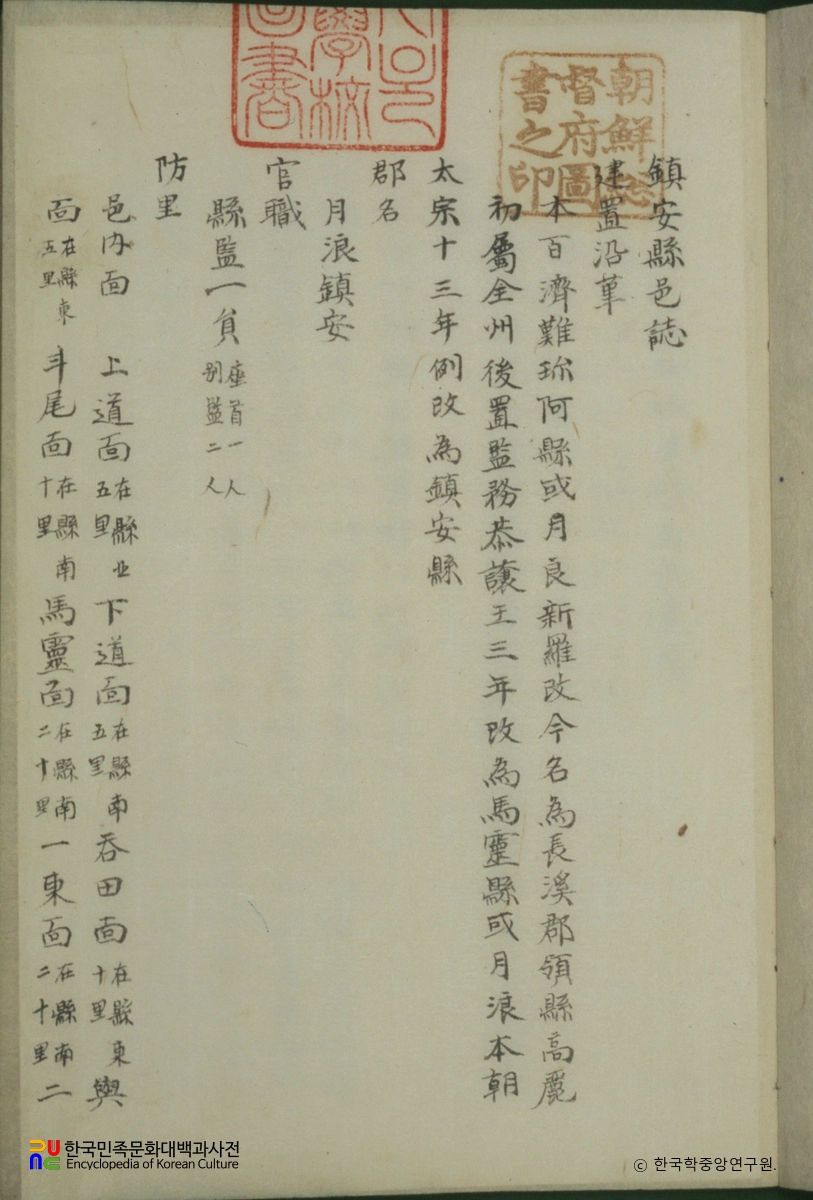 鎮安縣邑誌
建置沿革
本百濟難珎阿縣或月良新羅改今名為長溪郡領縣高麗
初屬全州後置監務恭讓王三年改為馬靈縣或月浪本朝
太宗十三年例改為鎮安縣
郡名
月浪鎮安
官職
縣監一員 座首一人 别監二人
防里
邑内面 上道面 在縣北五里 下道面 在縣南五里 呑田面 在縣東十里 與
面 在縣東五里 斗尾面 在縣南十里 馬靈面 在縣南二十里 一東面 在縣南二十里 二
朝鮮總
督府圖
書之印
學校
圖書
한국민족문화대백과사전
Encyclopedia of Korean Culture
© 한국학중앙연구원.